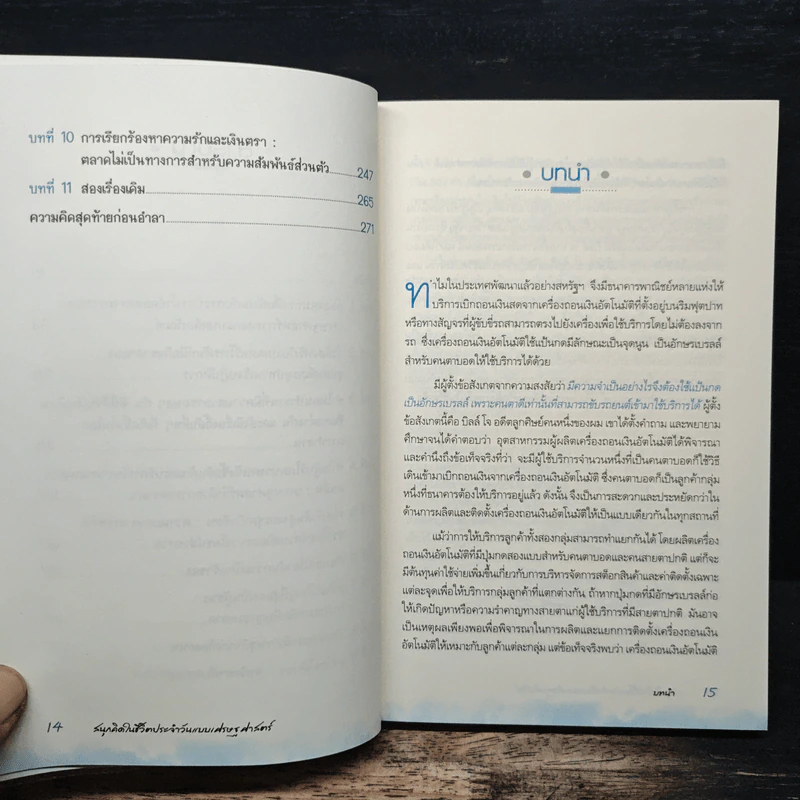 บทที่ 10 การเรียกร้องหาความรักและเงินตรา :
ตลาดไม่เป็นทางการสำหรับความสัมพันธ์ส่วนตัว 247
บทที่ 11 สองเรื่องเดิม 265
ความคิดสุดท้ายก่อนอำลา 271
14 สนุกคิดในชีวิตประจำวันแบบเศรษฐศาสตร์
บทนำ
ทำไมในประเทศพัฒนาแล้วอย่างสหรัฐฯ จึงมีธนาคารพาณิชย์หลายแห่งให้
บริการเบิกถอนเงินสดจากเครื่องถอนเงินอัตโนมัติที่ตั้งอยู่บนริมฟุตปาท
หรือทางสัญจรที่ผู้ขับขี่รถสามารถตรงไปยังเครื่องเพื่อใช้บริการโดยไม่ต้องลงจาก
รถ ซึ่งเครื่องถอนเงินอัตโนมัติใช้แป้นกดมีลักษณะเป็นจุดนูน เป็นอักษรเบรลล์
สำหรับคนตาบอดให้ใช้บริการได้ด้วย
มีผู้ตั้งข้อสังเกตจากความสงสัยว่า มีความจำเป็นอย่างไรจึงต้องใช้แป้นกด
เป็นอักษรเบรลล์ เพราะคนตาดีเท่านั้นที่สามารถขับรถยนต์เข้ามาใช้บริการได้ ผู้ตั้ง
ข้อสังเกตนี้คือ บิลล์ โจ อดีตลูกศิษย์คนหนึ่งของผม เขาได้ตั้งคำถาม และพยายาม
ศึกษาจนได้คำตอบว่า อุตสาหกรรมผู้ผลิตเครื่องถอนเงินอัตโนมัติได้พิจารณา
และคำนึงถึงข้อเท็จจริงที่ว่า จะมีผู้ใช้บริการจำนวนหนึ่งที่เป็นคนตาบอดก็ใช้วิธี
เดินเข้ามาเบิกถอนเงินจากเครื่องถอนเงินอัตโนมัติ ซึ่งคนตาบอดก็เป็นลูกค้ากลุ่ม
หนึ่งที่ธนาคารต้องให้บริการอยู่แล้ว ดังนั้น จึงเป็นการสะดวกและประหยัดกว่าใน
ด้านการผลิตและติดตั้งเครื่องถอนเงินอัตโนมัติให้เป็นแบบเดียวกันในทุกสถานที่
แม้ว่าการให้บริการลูกค้าทั้งสองกลุ่มสามารถทำแยกกันได้ โดยผลิตเครื่อง
ถอนเงินอัตโนมัติที่มีปุ่มกดสองแบบสำหรับคนตาบอดและคนสายตาปกติ แต่ก็จะ
มีต้นทุนค่าใช้จ่ายเพิ่มขึ้นเกี่ยวกับการบริหารจัดการสต็อกสินค้าและค่าติดตั้งเฉพาะ
แต่ละจุดเพื่อให้บริการกลุ่มลูกค้าที่แตกต่างกัน ถ้าหากปุ่มกดที่มีอักษรเบรลล์ก่อ
ให้เกิดปัญหาหรือความรำคาญทางสายตาแก่ผู้ใช้บริการที่มีสายตาปกติ มันอาจ
เป็นเหตุผลเพียงพอเพื่อพิจารณาในการผลิตและแยกการติดตั้งเครื่องถอนเงิน
อัตโนมัติให้เหมาะกับลูกค้าแต่ละกลุ่ม แต่ข้อเท็จจริงพบว่า เครื่องถอนเงินอัตโนมัติ
บทนำ 15